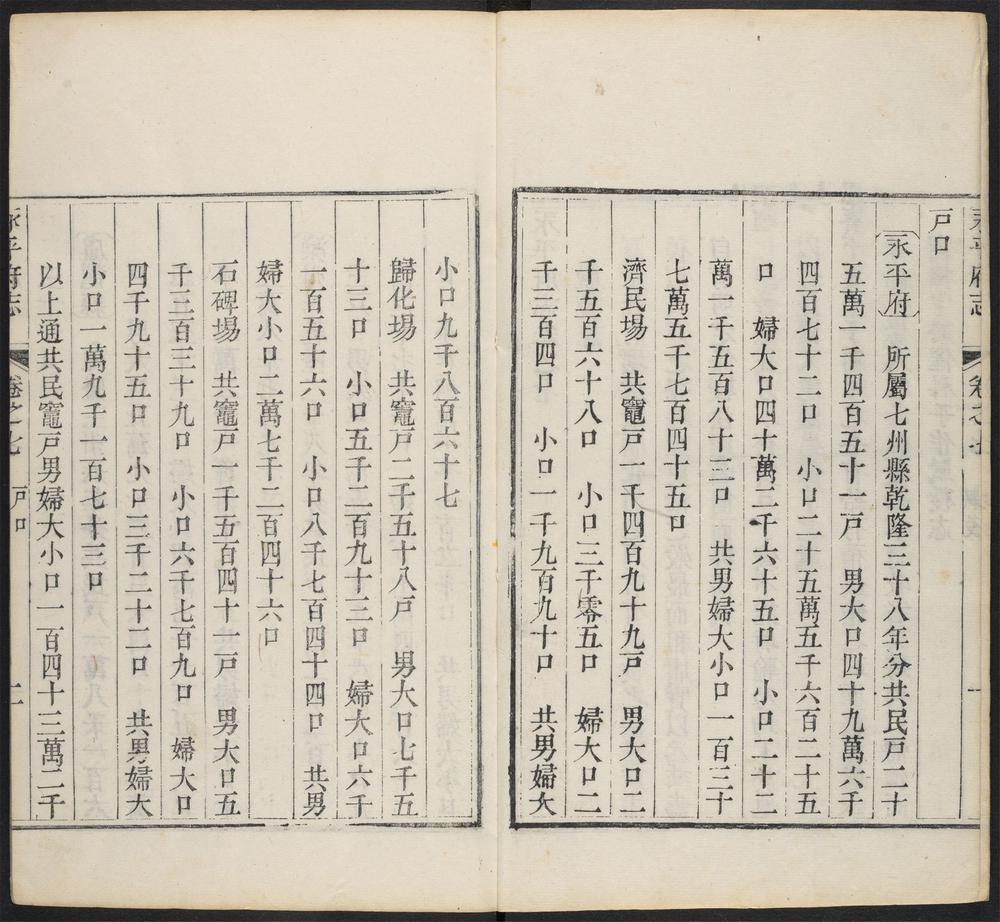 永平府志　卷之七　一
戶口
永平府　所屬七州縣乾隆三十八年分共民戶二十
五萬一千四百五十一戶　男大口四十九萬六千
四百七十二口　小口二十五萬五千六百二十五
口　婦大口四十萬二千六十五口　小口二十二
萬一千五百八十三口　共男婦大小口一百三十
七萬五千七百四十五口
濟民場　共竈戶一千四百九十九戶　男大口二
千五百六十八口　小口三千零五口　婦大口二
千三百四口　小口一千九百九十口　共男婦大
小口九千八百六十七
歸化場　共竈戶二千五十八戶　男大口七千五
十三口　小口五千二百九十三口　婦大口六千
一百五十六口　小口八千七百四十四口　共男
婦大小口二萬七千二百四十六口
石碑場　共竈戶一千五百四十一戶　男大口五
千三百三十九口　小口六千七百九口　婦大口
四千九十五口　小口三千二十二口　共男婦大
小口一萬九千一百七十三口
以上通共民竈戶男婦大小口一百四十三萬二千
永平府志　卷之七　戶口　二